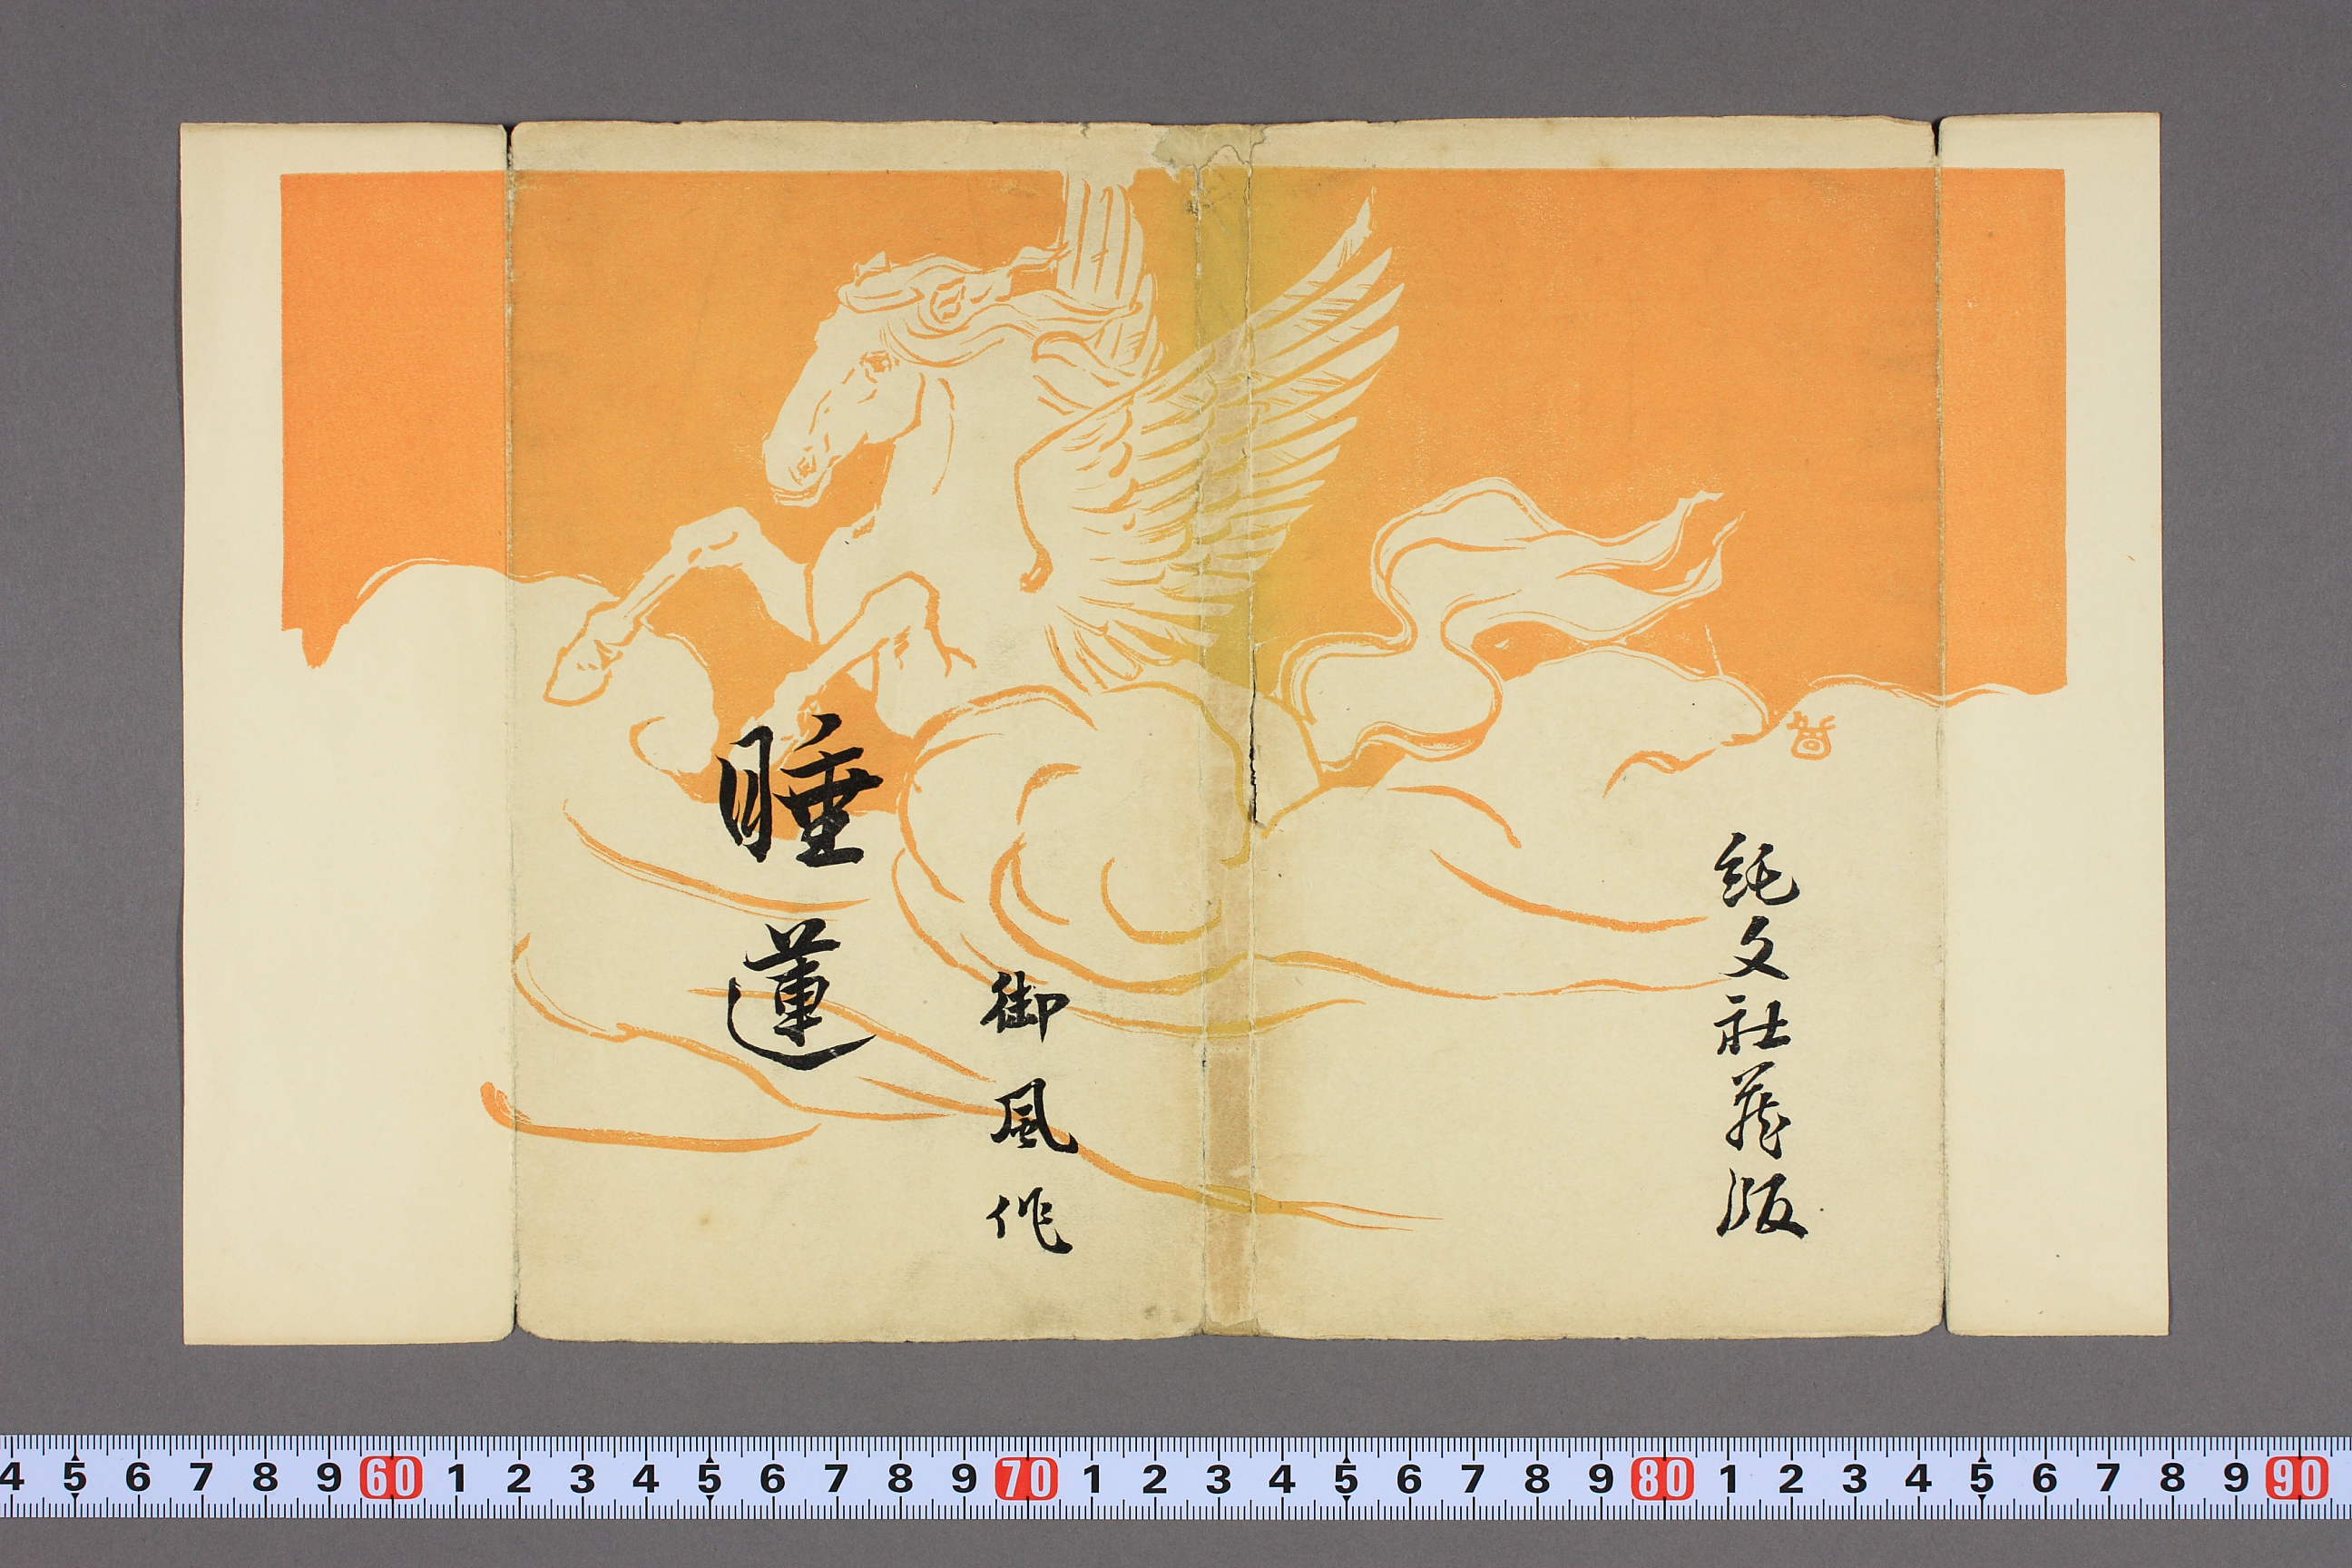 睡蓮
御風作
純文社蔵版
4 5 6 7 8 9 60 1 2 3 4 5 6 7 8 9 70 1 2 3 4 5 6 7 8 9 80 1 2 3 4 5 6 7 8 9 90